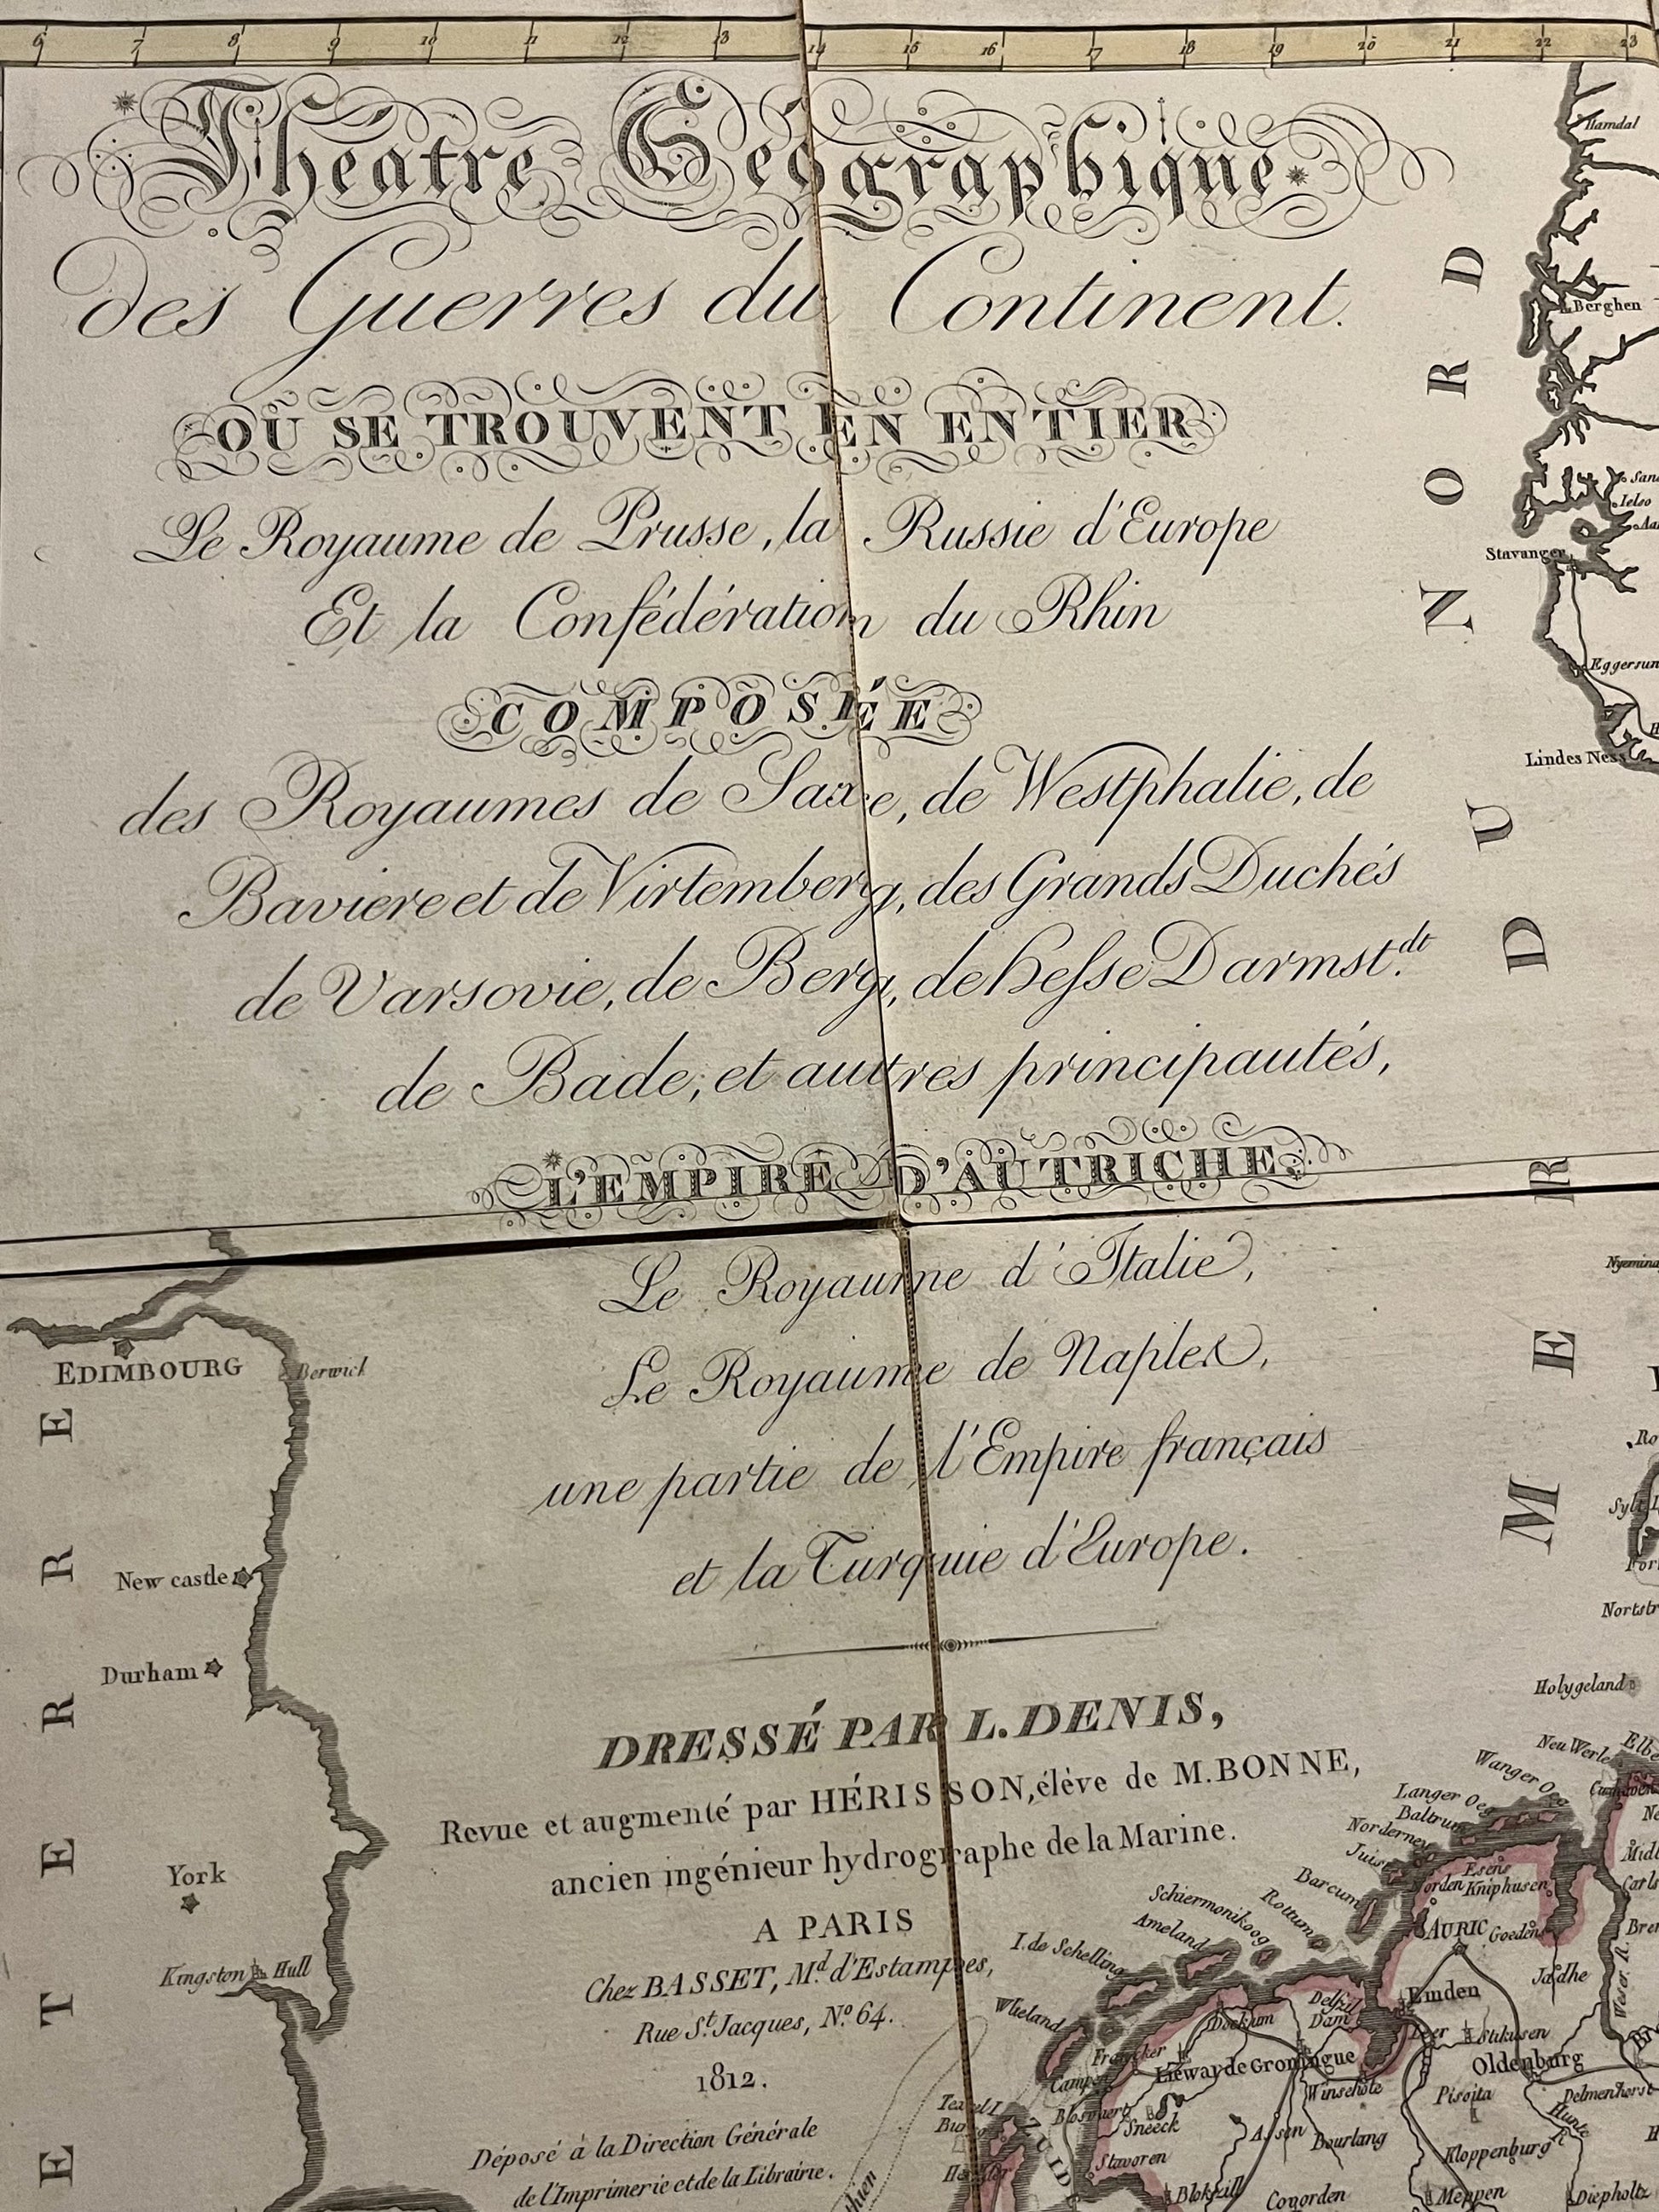 6 7 8 9 10 11 12 13 14 15 16 17 18 19 20 21 22 23
Théatre Géographique
des Guerres du Continent.
OÙ SE TROUVENT EN ENTIER
Le Royaume de Prusse, la Russie d'Europe
Et la Confédération du Rhin
COMPOSÉE
des Royaumes de Saxe, de Westphalie, de
Baviere et de Virtemberg, des Grands Duchés
de Varsovie, de Berg, de Hesse Darmst.dt
de Bade, et autres principautés,
L'EMPIRE D'AUTRICHE.
Le Royaume d'Italie,
Le Royaume de Naples,
une partie de l'Empire français
et la Turquie d'Europe.
DRESSÉ PAR L. DENIS,
Revue et augmenté par HÉRISSON, élève de M. BONNE,
ancien ingénieur hydrographe de la Marine.
A PARIS
Chez BASSET, Md. d'Estampes,
Rue St. Jacques, No. 64.
1812.
Déposé à la Direction Générale
de l'Imprimerie et de la Librairie.
MER DU NORD
ETERRE
Hamdal
Berghen
Ielso
Stavanger
Lindes Ness
EDIMBOURG
Berwick
New castle
Durham
York
Kingston Hull
Nortstr
Holygeland
Neu Werle
Elbe
Wanger Oeg
Langer Oeg
Baltrum
Norderney
Juist
Borcum
Rottum
Schiermonikoog
Ameland
I. de Schelling
Wlieland
Esens
Kniphusen
AURIC
Goedens
Jadhe
Weser R.
Emden
Delfzil
Dam
Leer
Stikusen
Oldenburg
Dockum
Franeker
Liewarde
Groningue
Winschote
Pisoita
Delmenhorst
Hunte
Sneeck
Assen
Bourlang
Kloppenburg
Stavoren
Blokzill
Coyorden
Meppen
Diepholtz